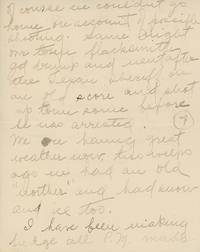 of course we couldn't go
home on account of possible
shooting. Same night
our town blacksmith
got drunk and went after
the Texan sheriff on
an old score and shot
up town some before
he was arrested. 7
We are having great
weather now, two weeks
ago we had an old
"Norther" and had snow
and ice too.
I have been making
fudge all P.M. made